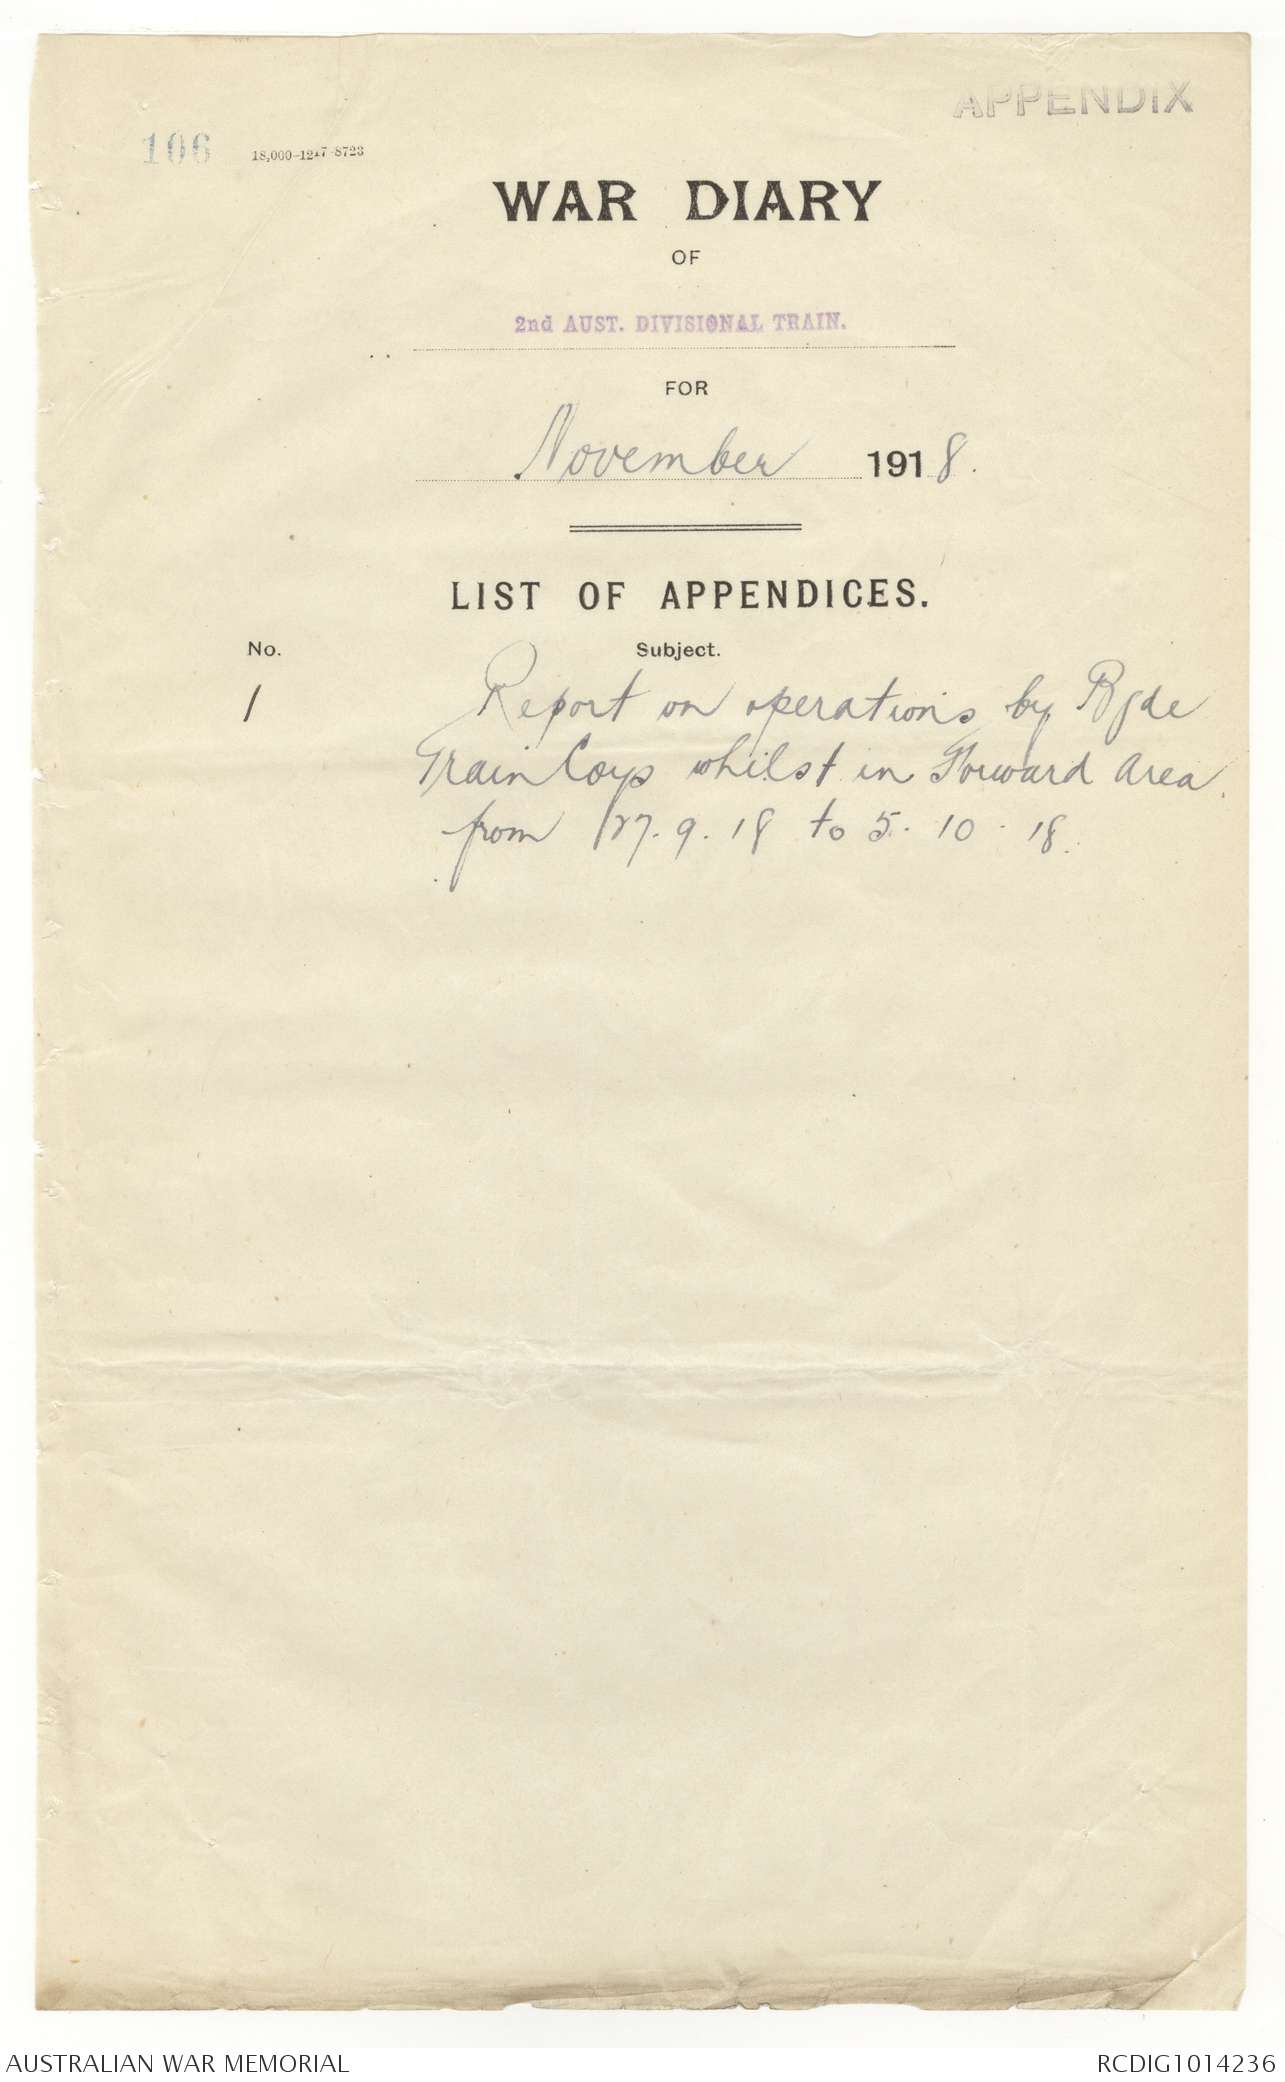 APPENDIX
106 18,000-1217-8723
WAR DIARY
OF
2nd AUST. DIVISIONAL TRAIN.
FOR
November 1918.
LIST OF APPENDICES.
No. Subject.
1 Report on operations by Bgde
Train Coys whilst in Forward Area.
from 27.9.18 to 5.10.18.
AUSTRALIAN WAR MEMORIAL RCDIG1014236